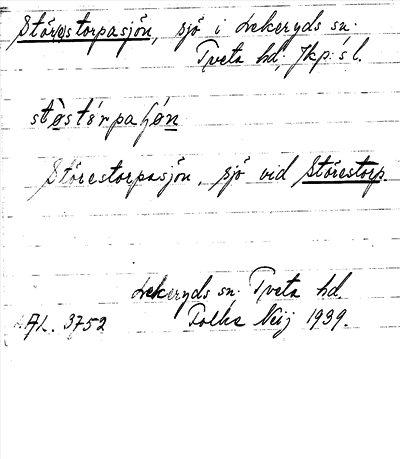 Störestorpasjön, sjö i Lekeryds sn.
Tveta hd; Jkp:s l.
Störestorpasjön, sjö vid Störestorp.
Lekeryds sn. Tveta hd.
AL. 3752 Folke Neij 1939.